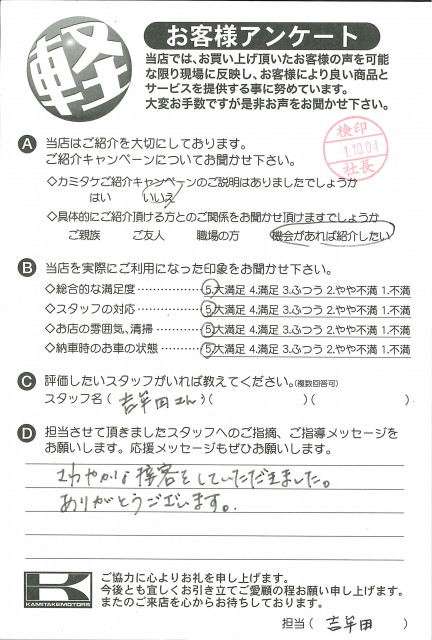 軽
お客様アンケート
当店では、お買い上げ頂いたお客様の声を可能
な限り現場に反映し、お客様により良い商品と
サービスを提供する事に努めています。
大変お手数ですが是非お声をお聞かせ下さい。
検印
1.10.04
社長
A 当店はご紹介を大切にしております。
ご紹介キャンペーンについてお聞かせ下さい。
◇カミタケご紹介キャンペーンのご説明はありましたでしょうか
はい いいえ
◇具体的にご紹介頂ける方とのご関係をお聞かせ頂けますでしょうか
ご親族 ご友人 職場の方 機会があれば紹介したい
B 当店を実際にご利用になった印象をお聞かせ下さい。
◇総合的な満足度……………5.大満足 4.満足 3.ふつう 2.やや不満 1.不満
◇スタッフの対応……………5.大満足 4.満足 3.ふつう 2.やや不満 1.不満
◇お店の雰囲気、清掃………5.大満足 4.満足 3.ふつう 2.やや不満 1.不満
◇納車時のお車の状態………5.大満足 4.満足 3.ふつう 2.やや不満 1.不満
C 評価したいスタッフがいれば教えてください。(複数回答可)
スタッフ名( 吉年田さん )( )( )
D 担当させて頂きましたスタッフへのご指摘、ご指導メッセージを
お願いします。応援メッセージもぜひお願いします。
さわやかな接客をしていただきました。
ありがとうございます。
K
KAMITAKEMOTORS
ご協力に心よりお礼を申し上げます。
今後とも宜しくお引き立てご愛顧の程お願い申し上げます。
またのご来店を心からお待ちしております。
担当( 吉年田 )